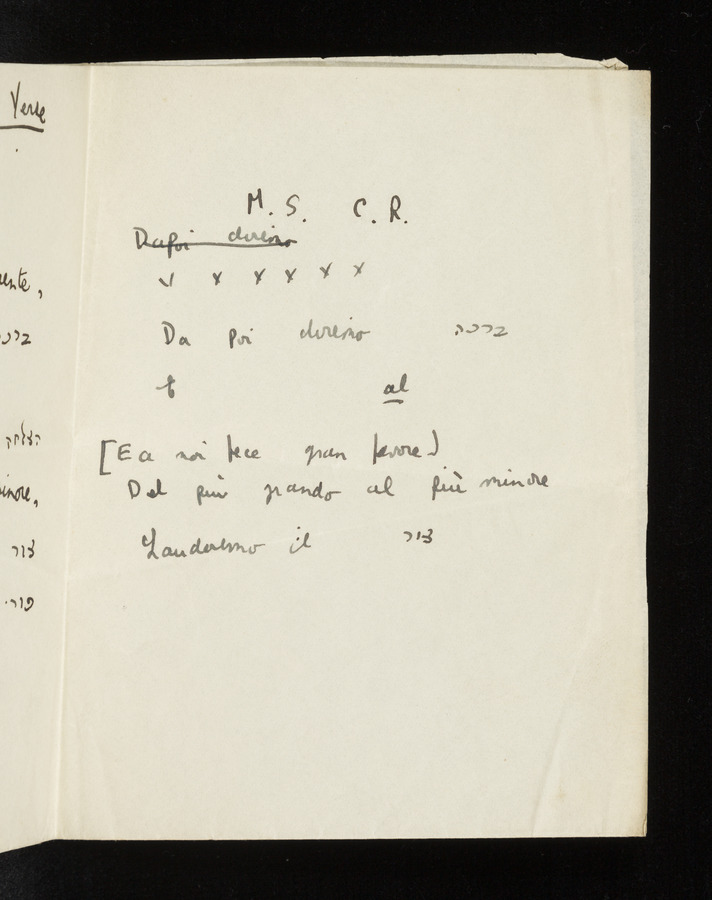 Verse
ente,
ברכה
הצלחה
inore,
צור
פור.
M. S. C. R.
Dapoi diremo
x x x x x x
Da poi diremo ברכה
t al
[E a noi fece gran favore]
Del più grando al più minore
Lauderemo il צור